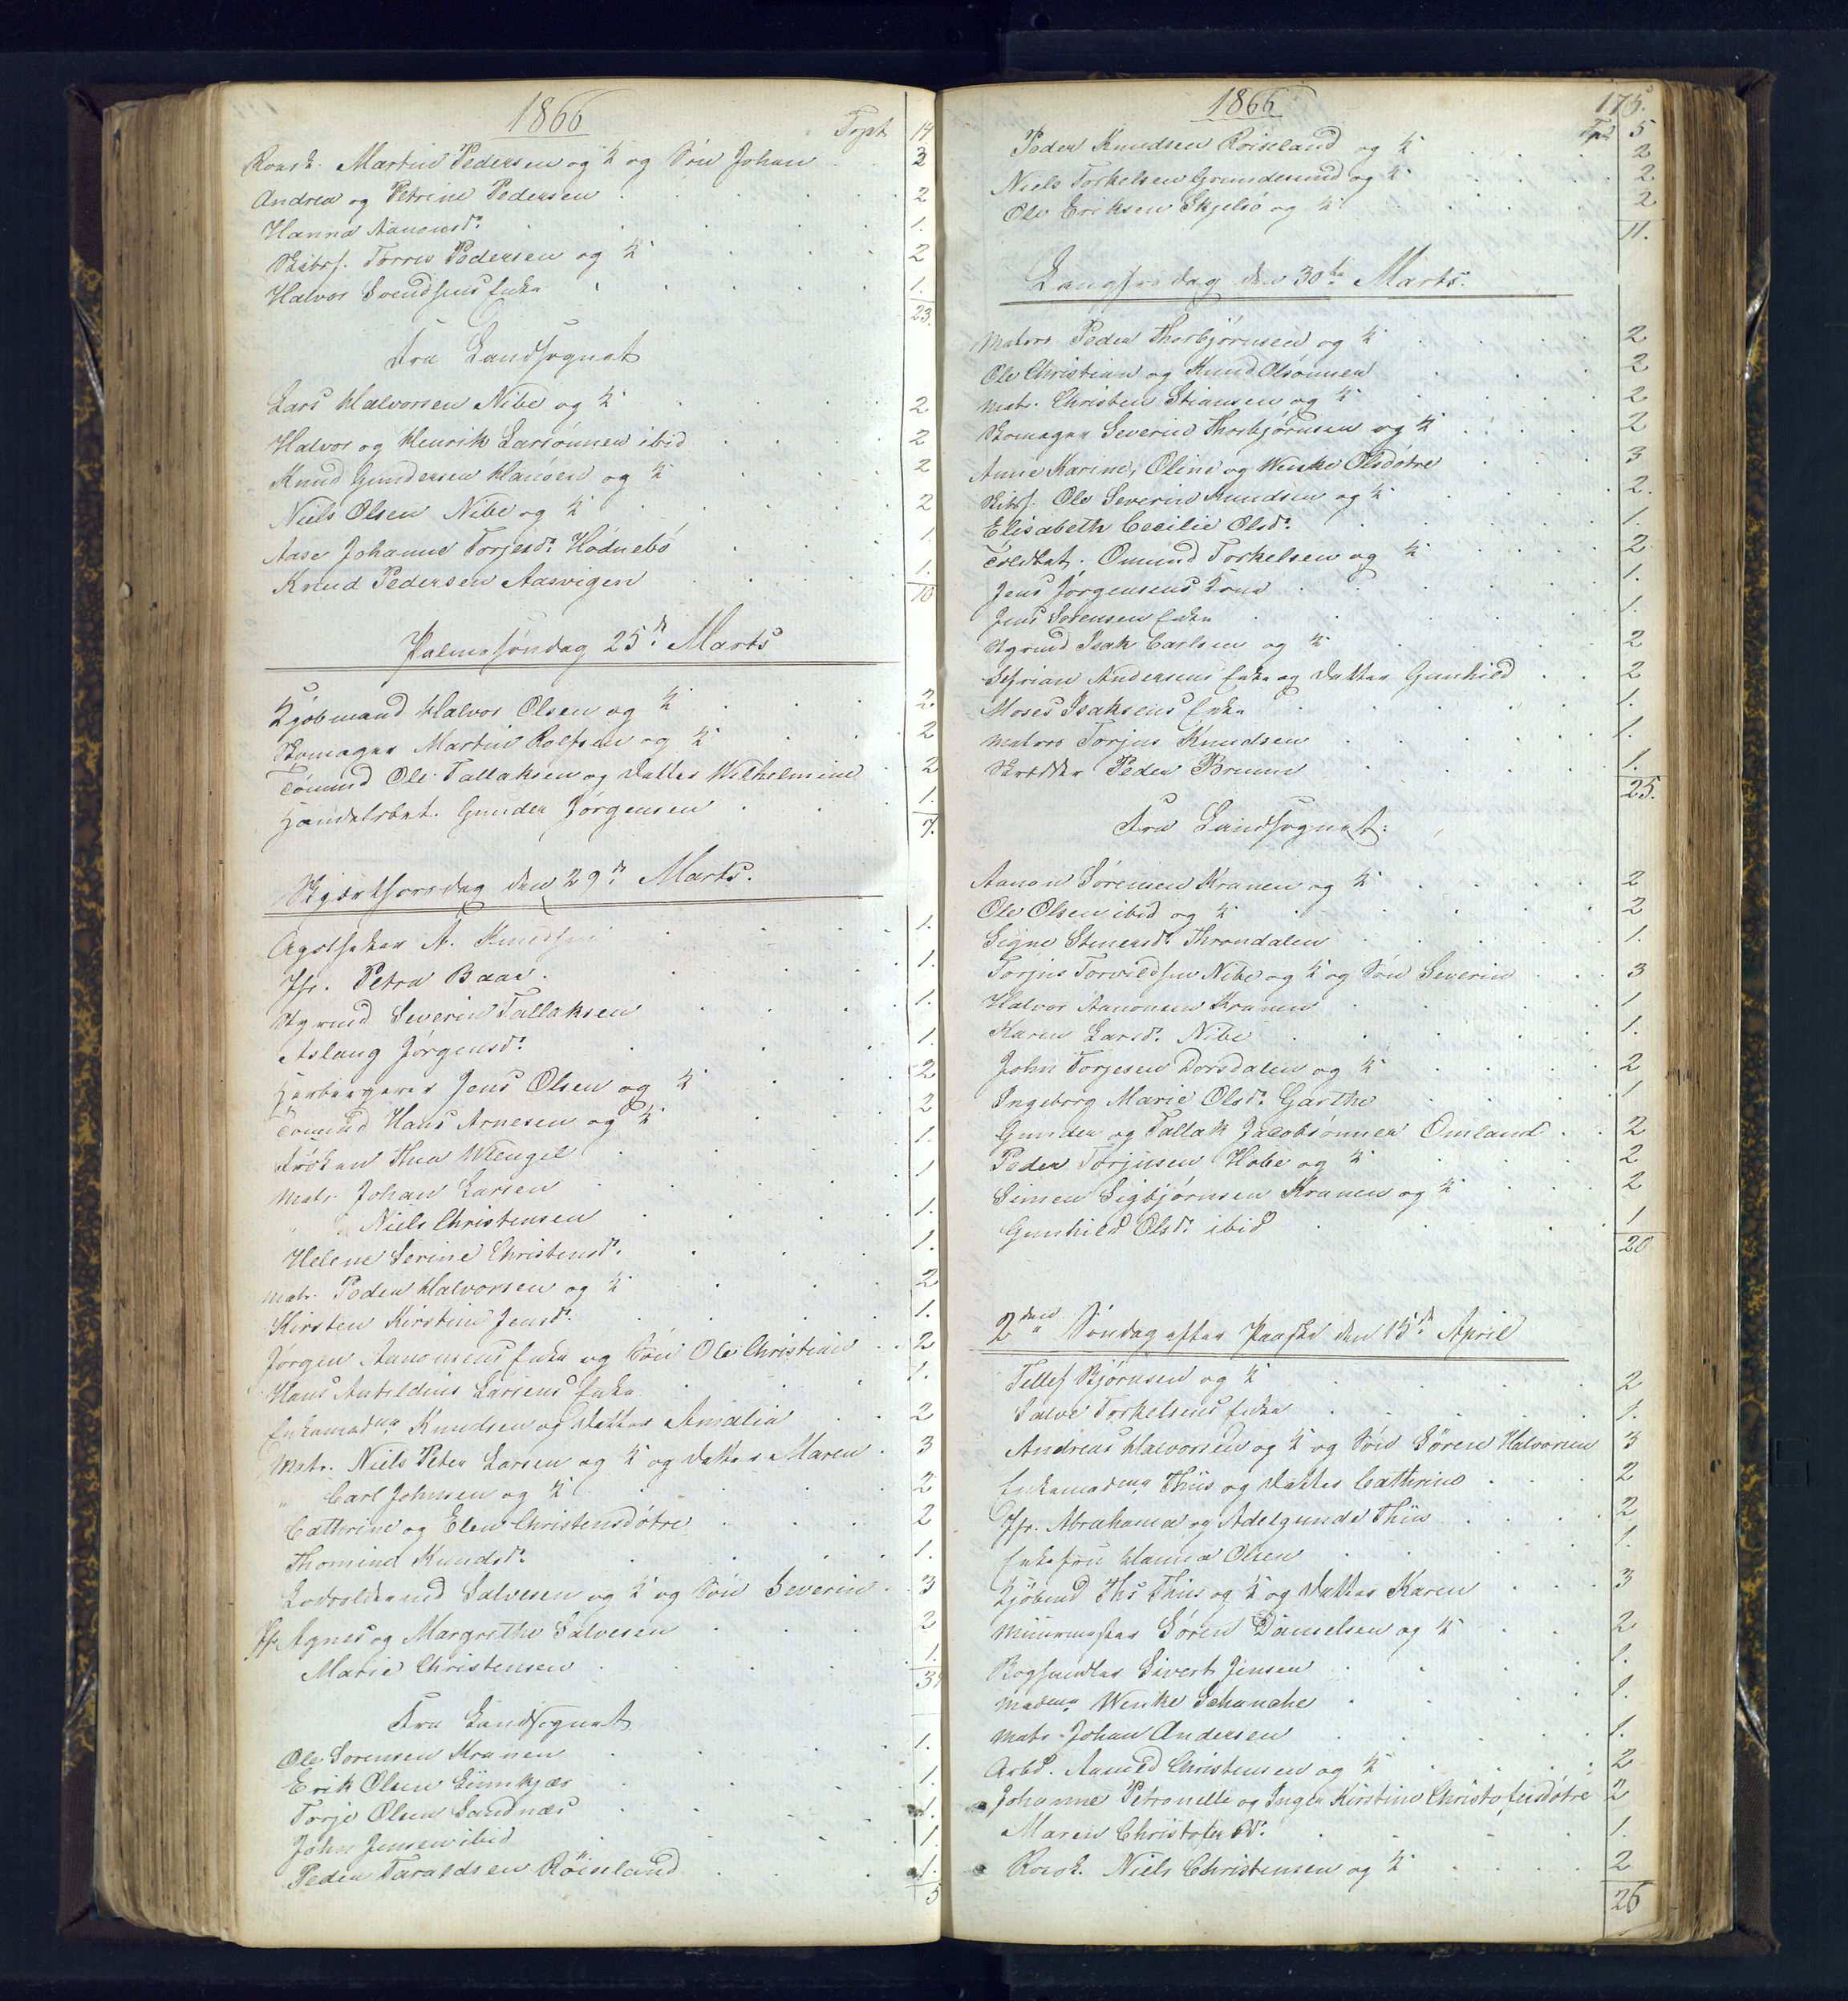 1866
Trpt. 14
Martin Pedersen og K. og Søn Johan 3
Andrea og Petrine Pedersen 2
Hanna Aanonsdr. 1.
Skibsf. Torres Pedersen og K. 2
Halvor Svendsens Enke 1.
23.
Fra Landsognet
Lars Halvorsen Nibe og K. 2
Halvor og Henrik Larsønner ibid 2
Knud Gundersen Hansen og K. 2
Niels Olsen Nibe og K. 2
Aase Johanne Torjesdr. Hødnebø 1.
Knud Pedersen Aasvigen 1.
10
Palmesøndag 25de Marts
Kjøbmand Halvor Olsen og K. 2.
Skomager Martin Rolfsen og K. 2
Tømmd Ole Tallaksen og Datter Wilhelmine 2
Handelsbet. Gunder Jørgensen 1.
7.
Skjærthorsdag den 29de Marts.
Apotheker A. Knudsen 1.
Jfr. Petra Baar. 1.
Styrmd Severin Tallaksen 1.
Aslaug Jørgensdr. 1.
Herbergerer Jens Olsen og K. 2
Tømmd Hans Arnesen og K. 2
Frøken Thea Wlengel 1.
Matr. Johan Larsen 1
" Niels Christensen 1.
Helene Serine Christensdr. 1.
Matr. Peder Halvorsen og K. 2
Kirsten Kirstine Jensdr. 1.
Jørgen Aanonsens Enke og Søn Ole Christian 2
Hans Larsens Enke 1.
Enkemadme Knudsen og Datter Amalia 2
Matr. Niels Peter Larsen og K. og Datter Maren 3
" Carl Johnsen og K. 2
Cathrine og Elen Christensdøtre 2
Thomine Knudsdr. 1.
Salvesen og K. og Søn Severin 3
Jfr. Agnes og Margrethe Salvesen 2
Marie Christensen 1.
Fra Landsognet
Ole Sørensen Kranen 1.
Erik Olsen 1.
Torje Olsen Sandnæs 1.
John Jensen ibid 1.
Peder Taraldsen Röiseland 1.
5
1866
175.
Trpt 5
Peder Knudsen Röiseland og K. 2
Niels Torkelsen Grundesund og K. 2.
Ole Eriksen Skjelsø og K. 2
11.
Langfredag den 30te Marts.
Matros Peder Thorbjørnsen og K. 2
Ole Christian og Knud Olsønner 2
Matr. Christen Stiansen og K. 2
Skomager Severin Thorbjørnsen og K. 2
Anne Karine, Oline og Wenke Olsdøtre 3
Skibsf. Ole Severin Knudsen og K. 2.
Elisabeth Cecilie Olsdr. 1.
Toldbet. Omund Torkelsen og K. 2
Jens Jørgensens Kone 1.
Jens Sørensen Enke 1.
Styrmd Isak Carlsen og K. 2
Andersens Enke og Datter Gunhild 2
Moses Isaksens Enke 1.
Matros Torjus Knudsen 1.
Skrædder Peder Bruun 1.
25.
Fra Landsognet:
Aanon Sørensen Kranen og K. 2
Ole Olsen ibid og K. 2
Signe Stenersdr. Throndalen 1.
Torjus Torvildsen Nibe og K. og Søn Severin 3
Halvor Aanonsen Kranen 1
Karen Larsdr. Nibe 1.
John Torjesen Dorsdalen og K. 2
Ingeborg Marie Olsdr. Garthe 1
Gunder og Tallak Jacobsønner Omland 2
Peder Torjusen Hobe og K. 2
Simen Sigbjørnsen Kranen og K. 2
Gunhild Olsdr. ibid 1
20
2den Søndag efter Paaske den 15de April
Tellef Bjørnsen og K. 2
Salve Torkelsens Enke 1.
Andreas Halvorsen og K. og Søn Søren Halvorsen 3
Enkemadme Thiis og Datter Cathrine 2
Jfr. Abrahama og Adelgunde Thiis 2
Enkefru Hanna Olsen 1.
Kjøbmd Ths Thiis og K. og Datter Karen 3
Muurmester Søren Danielsen og K. 2
Boghandler Sivert Jensen 1.
Madme Wenke Schanche 1.
Matr. Johan Andersen 1.
Arbd. Aamund Christensen og K. 2
Johanne Petronelle og Inger Kirstine Christofersdøtre 2
Maren Christofersdr. 1.
Niels Christensen og K. 2
26